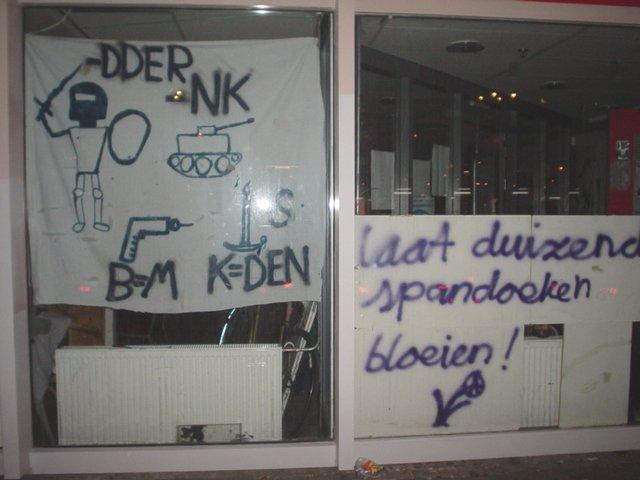 -DDER
NK
S
B=M
K=DEN
laat duizend
spandoeken
bloeien!